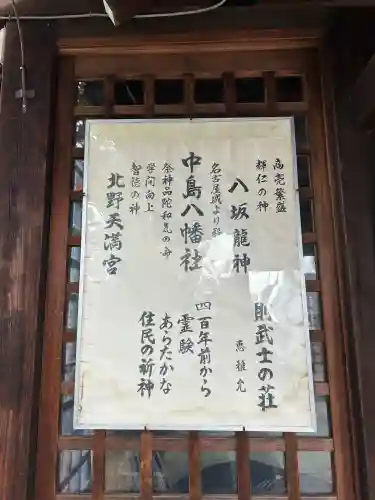 商売繁盛
輝仁の神
八坂龍神
名古屋城より
中島八幡社
祭神品陀和気の命
学問向上
智徳の神
北野天満宮
武士の荘
四百年前から
霊験
あらたかな
住民の祈神